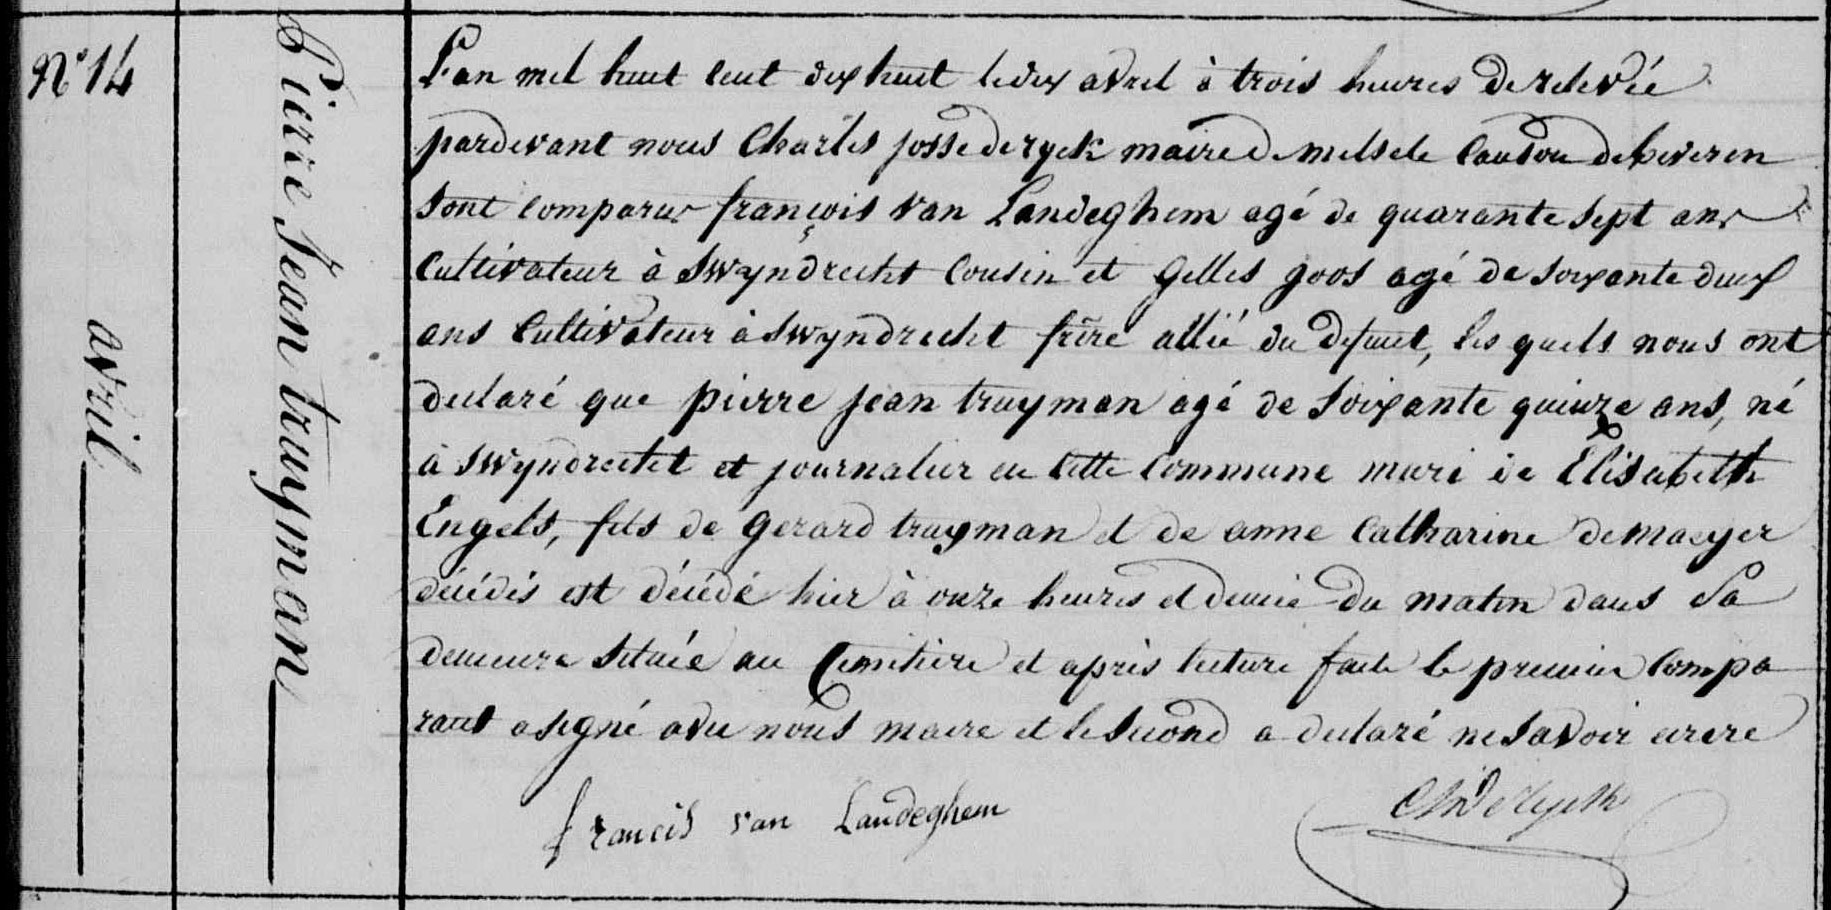 N° 14
avril
Pierre Jean truyman
L'an mil huit cent dix huit le dix avril à trois heures de relevée
pardevant nous Charles josse de ryck maire de melsele Canton de beveren
sont comparus françois van Landeghem agé de quarante sept ans
Cultivateur à Swyndrecht Cousin et gilles goos agé de soixante deux
ans Cultivateur à Swyndrecht frère allié du defunt, les quels nous ont
declaré que pierre jean truyman agé de soixante quinze ans, né
à Swyndrecht et journalier en cette Commune mari de Elisabeth
Engels, fils de gerard truyman et de anne Catharine de maeyer
décédés est décédé hier à onze heures et demie du matin dans Sa
demeure située au Cimitiere et après lecture faite le premier Compa
rant a signé avec nous maire et le second a declaré ne savoir ecrire
francis van Landeghem
Ch De Ryck